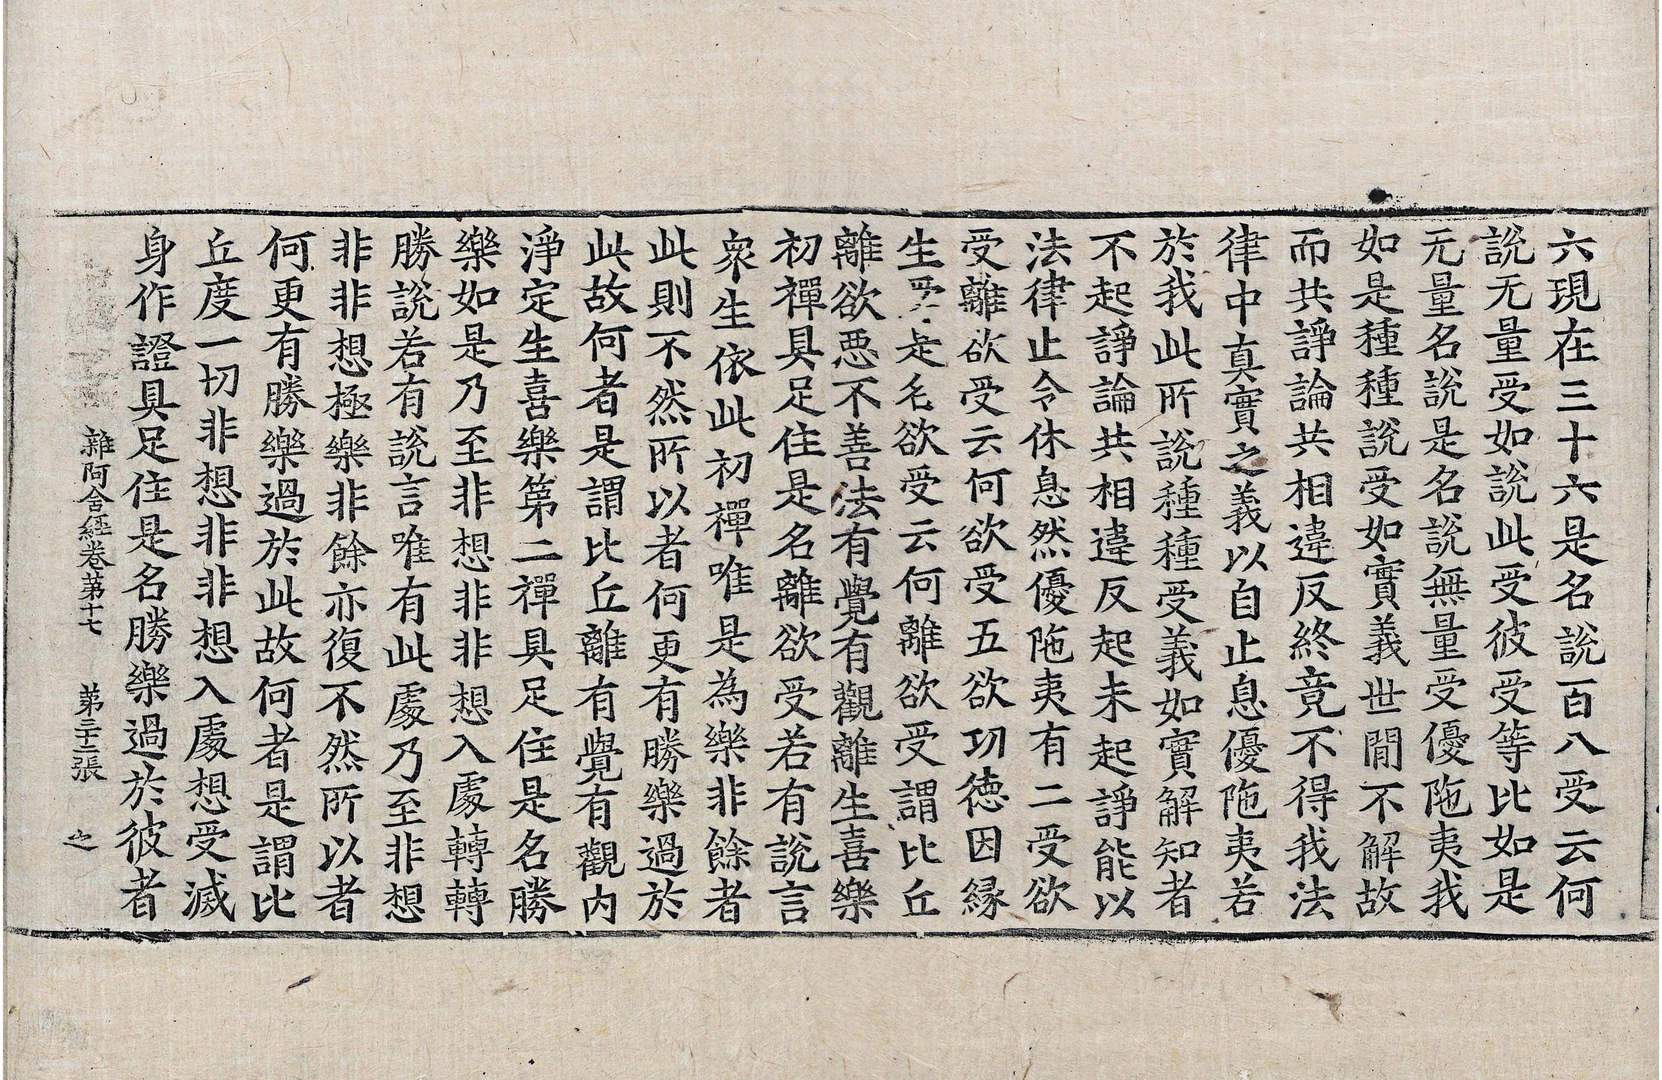 六現在三十六是名說百八受云何
說无量受如說此受彼受等比如是
无量名說是名說無量受優陁夷我
如是種種說受如實義世間不解故
而共諍論共相違反終竟不得我法
律中真實之義以自止息優陁夷若
於我此所說種種受義如實解知者
不起諍論共相違反起未起諍能以
法律止令休息然優陁夷有二受欲
受離欲受云何欲受五欲功德因緣
生受是名欲受云何離欲受謂比丘
離欲惡不善法有覺有觀離生喜樂
初禪具足住是名離欲受若有說言
衆生依此初禪唯是為樂非餘者
此則不然所以者何更有勝樂過於
此故何者是謂比丘離有覺有觀內
淨定生喜樂第二禪具足住是名勝
樂如是乃至非想非非想入處轉轉
勝說若有說言唯有此處乃至非想
非非想極樂非餘亦復不然所以者
何更有勝樂過於此故何者是謂比
丘度一切非想非非想入處想受滅
身作證具足住是名勝樂過於彼者
雜阿含經卷第十七 第二十二張 之